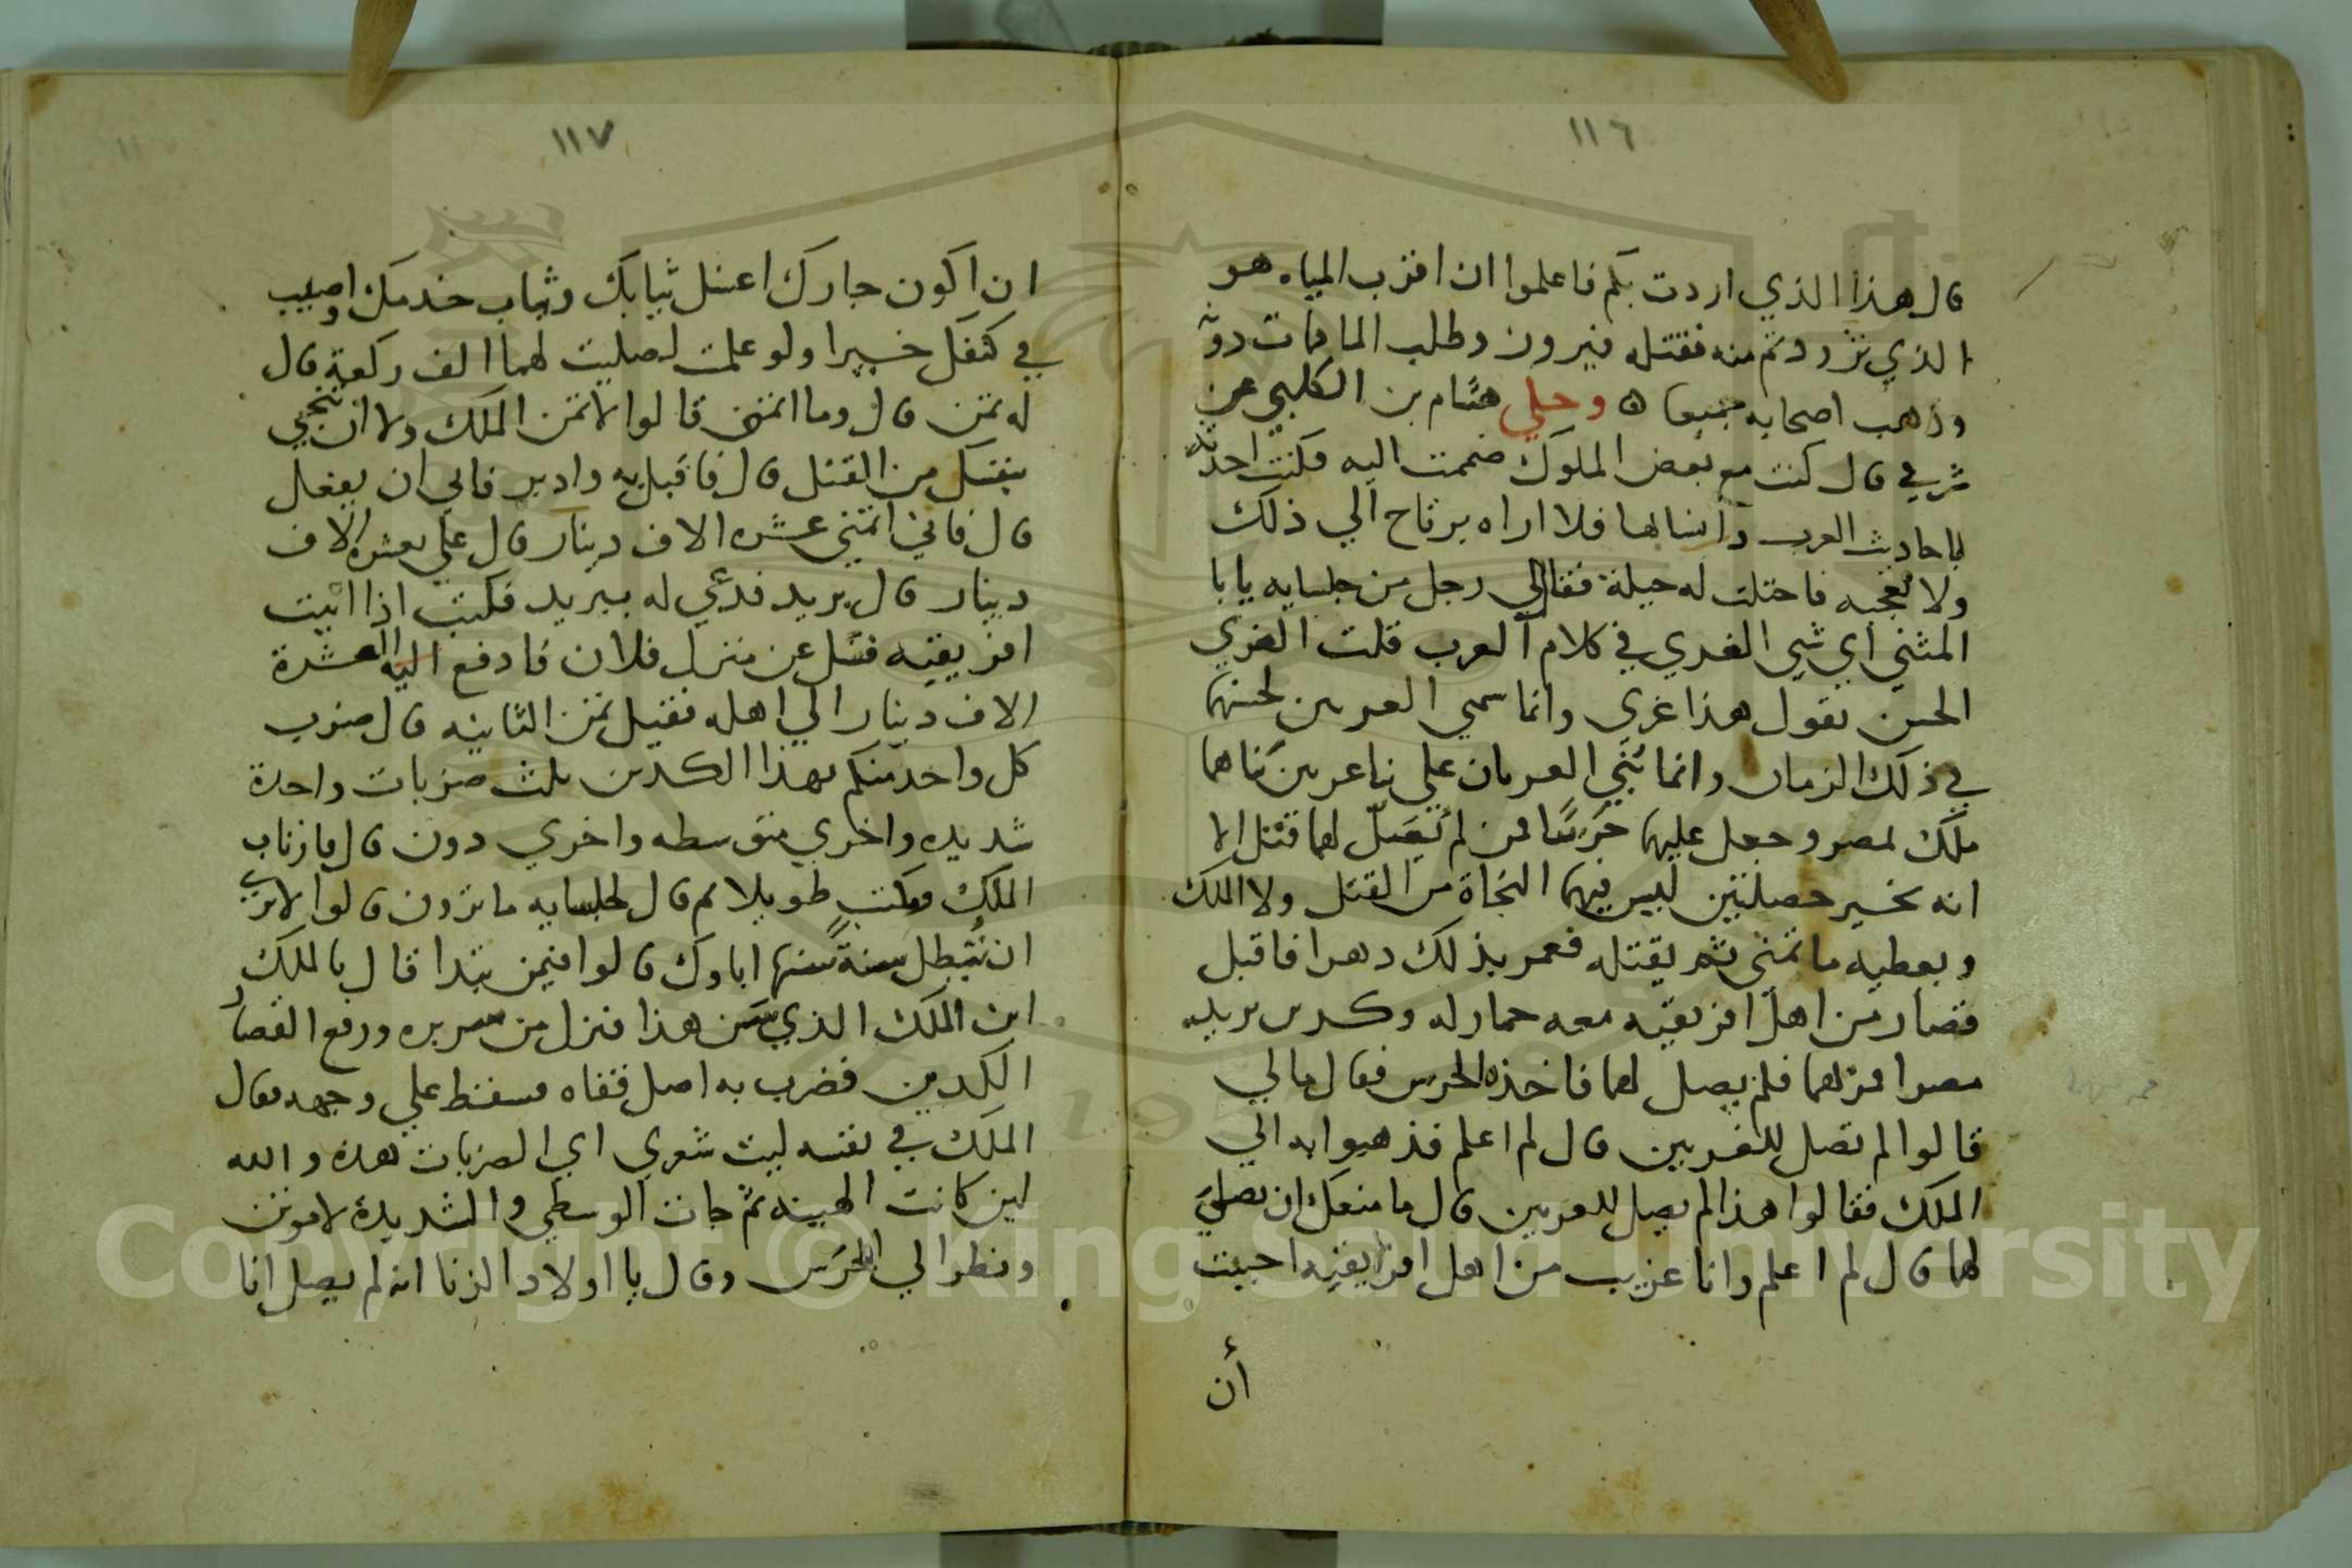 ١١٦
قال هذا الذي اردت بكم فاعلموا ان اقرب المياه هو
الذي تزودتم منه فقتله فيرون وطلب الما فمات دونه
وذهب اصحابه جميعا ه وحكي هشام بن الكلبي عن
شرفي قال كنت مع بعض الملوك ضممت اليه فكنت احدثه
باحاديث العرب وانسالها فلا اراه يرتاح الي ذلك
ولا تعجبه فاحتلت له حيلة فقال لي رجل من جلسايه يابا
المثني اي شي الغري في كلام العرب قلت الغري
الحسن تقول هذا غري وانما سمي الغريين لحسنهما
في ذلك الزمان وانما بني الغريان علي بنا غريين بناهما
ملك لمصر وجعل عليهما حرسا فمن لم يصل لهما قتل الا
انه يخير خصلتين ليس فيهما النجاة من القتل ولا الملك
ويعطيه ما تمني ثم يقتله فعمر بذلك دهرا فاقبل
قصار من اهل افريقيه معه حمار له وكدين يريد
مصرا فمر بهما فلم يصل لهما فاخذه الحرس فقال مالي
قالوا لم تصل للغريين قال لم اعلم فذهبوا به الي
الملك فقالوا هذا لم يصل للغريين قال ما منعك ان تصلي
لهما قال لم اعلم وانا غريب من اهل افريقيه احببت
أن
١١٧
ان اكون جارك اغسل ثيابك وثياب خدمك واصيب
في كنفك خيرا ولو علمت لصليت لهما الف ركعة قال
له تمن قال وما اتمني قالوا لا تتمن الملك ولا ان تنجي
نفسك من القتل قال فاقبل به وادبر فابي ان يفعل
قال فاني اتمني عشره الاف دينار قال علي بعشره الاف
دينار قال بريد فدعي له ببريد فكتب اذا اتيت
افريقيه فسل عن منزل فلان فادفع اليه العشرة
الاف دينار الي اهله فقيل تمن الثانيه قال ضرب
كل واحد منكم بهذا الكدين ثلث ضربات واحدة
شديده واخري متوسطه واخري دون قال فارتاب
الملك ومكث طويلا ثم قال لجلسايه ما ترون قالوا لا نري
ان تبطل سنة سنها اباوك قالوا فبمن تبدا قال بالملك
ابن الملك الذي سن هذا فنزل من سريره ورفع القصار
الكدين فضرب به اصل قفاه فسقط علي وجهه فقال
الملك في نفسه ليت شعري اي الضربات هذه والله
لين كانت الهينه ثم جات الوسطي والشديدة لاموتن
ونظر الي الحرس وقال يا اولاد الزنا انه لم يصل انا
Copyright © King Saud University